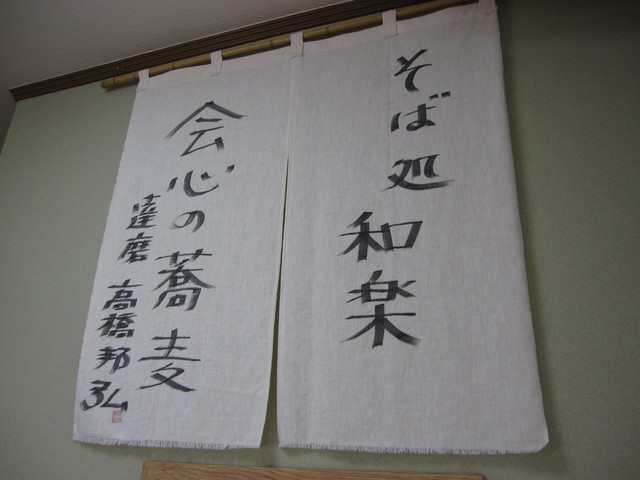 そば処
和楽
会心の蕎麦
達磨 高橋邦弘